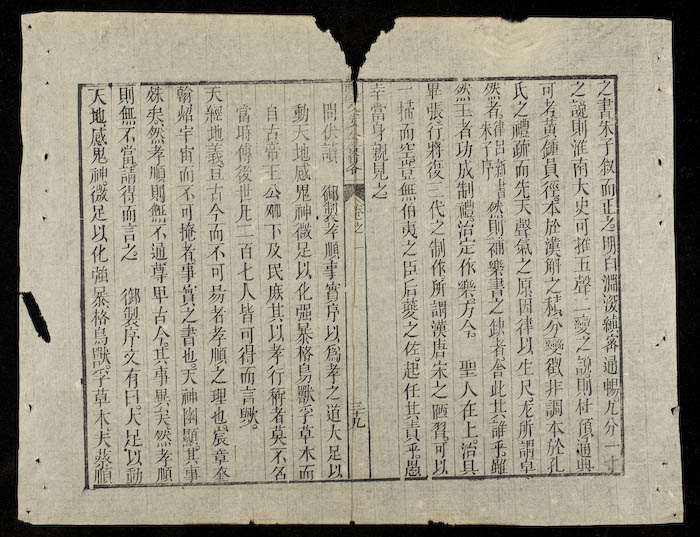 之書朱子叙而正之明白淵深縝密通暢九分一寸
之說則淮南大史可推五聲二變之說則杜預通典
可考黃鍾員徑本於漢斛之積分變徵非調本於孔
氏之禮疏而先天聲氣之原因律以生尺尤所謂卓
然者律呂新書朱子序然則補樂書之缺者舍此其誰乎雖
然王者功成制禮治定作樂方今　聖人在上治具
畢張行將復三代之制作所謂漢唐宋之陋習可以
一掃而空豈無伯夷之臣后夔之佐起任其責乎愚
幸當身親見之
卷之
三十九
問伏讀　御製孝順事實序以爲孝之道大足以
動天地感鬼神微足以化强暴格鳥獸孚草木而
自古帝王公卿下及民庶其以孝行稱者莫不名
當時傳後世凡二百七人皆可得而言歟
天經地義亘古今而不可易者孝順之理也宸章奎
翰炤宇宙而不可掩者事實之書也天神幽顯其事
殊矣然孝順則無不通尊卑古今其事異矣然孝順
則無不當請得而言之　御製序文有曰大足以動
天地感鬼神微足以化强暴格鳥獸孚草木夫烝順